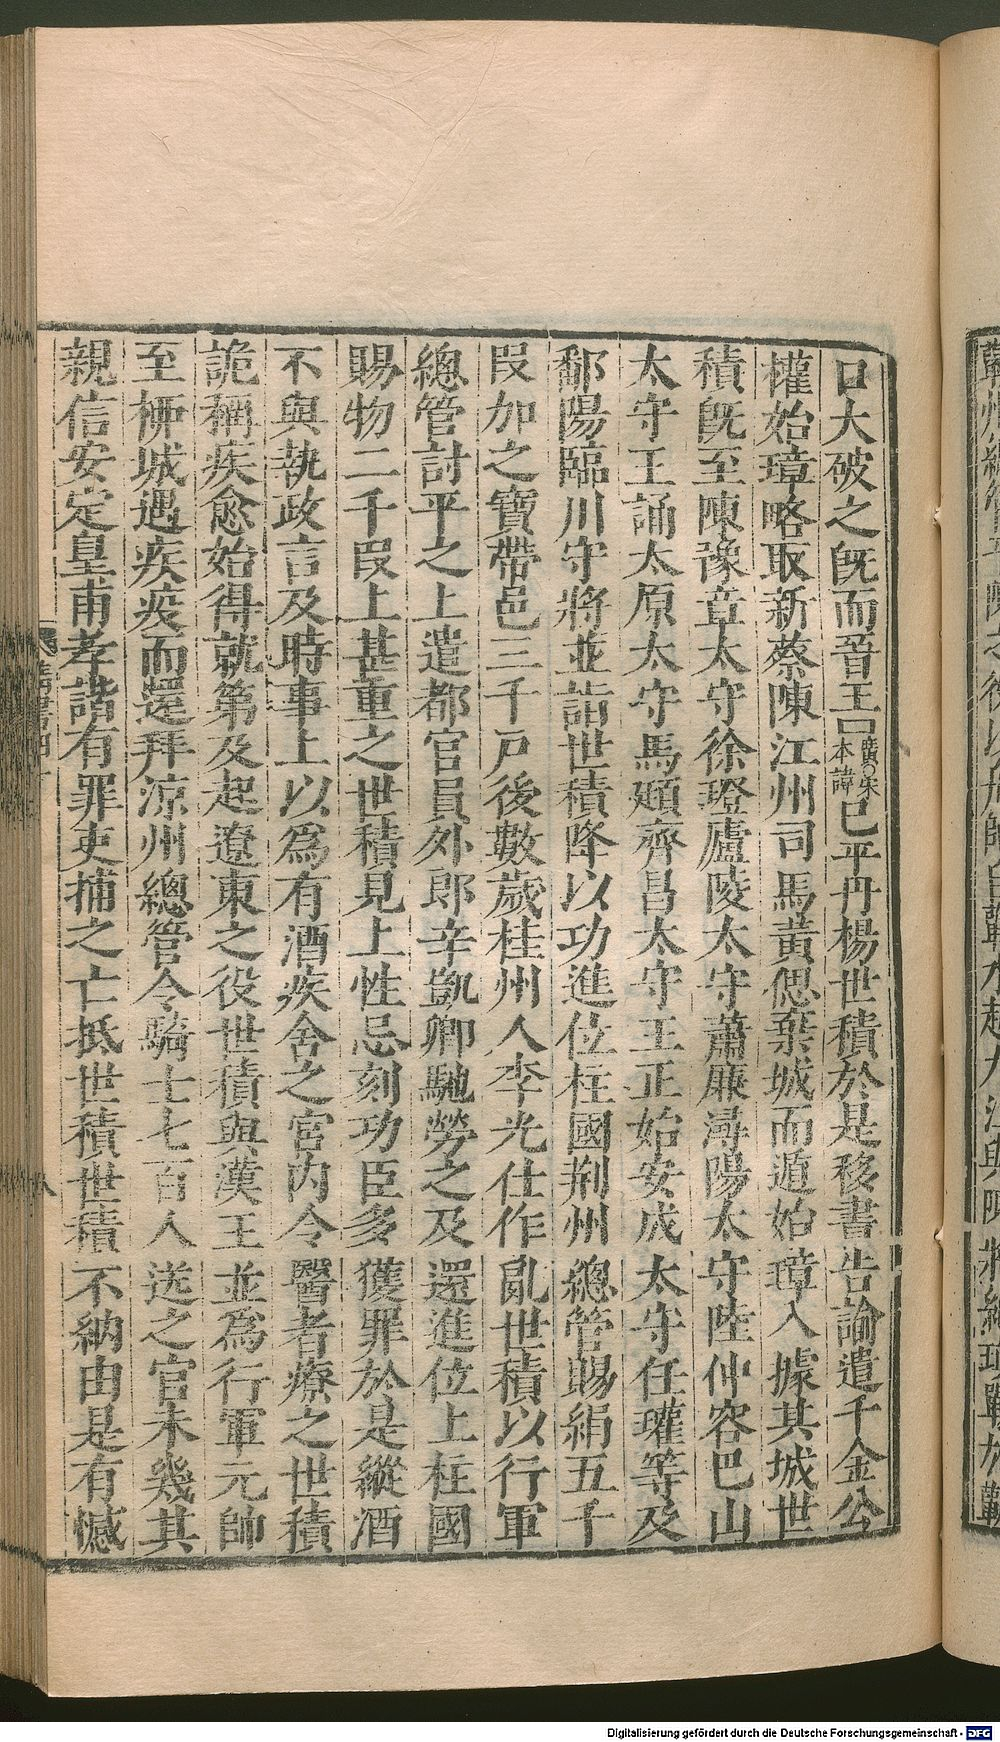 口大破之旣而晉王口廣〇宋本諱已平丹楊世積於是移書告諭遣千金公
權始璋略取新蔡陳江州司馬黃偲棄城而遁始璋入據其城世
積旣至陳豫章太守徐璒廬陵太守蕭廉潯陽太守陸仲容巴山
太守王誦太原太守馬頲齊昌太守王正始安成太守任瓘等及
鄱陽臨川守將並詣世積降以功進位柱國荆州總管賜絹五千
段加之寶帶邑三千戸後數歲桂州人李光仕作亂世積以行軍
總管討平之上遣都官員外郎辛凱卿馳勞之及還進位上柱國
賜物二千段上甚重之世積見上性忌刻功臣多獲罪於是縱酒
不與執政言及時事上以爲有酒疾舍之宮內令醫者療之世積
詭稱疾愈始得就第及起遼東之役世積與漢王並爲行軍元帥
至栁城遇疾疫而還拜涼州總管令騎士七百人送之官未幾其
親信安定皇甫孝諧有罪吏捕之亡抵世積世積不納由是有憾
Digitalisierung gefördert durch die Deutsche Forschungsgemeinschaft - DFG